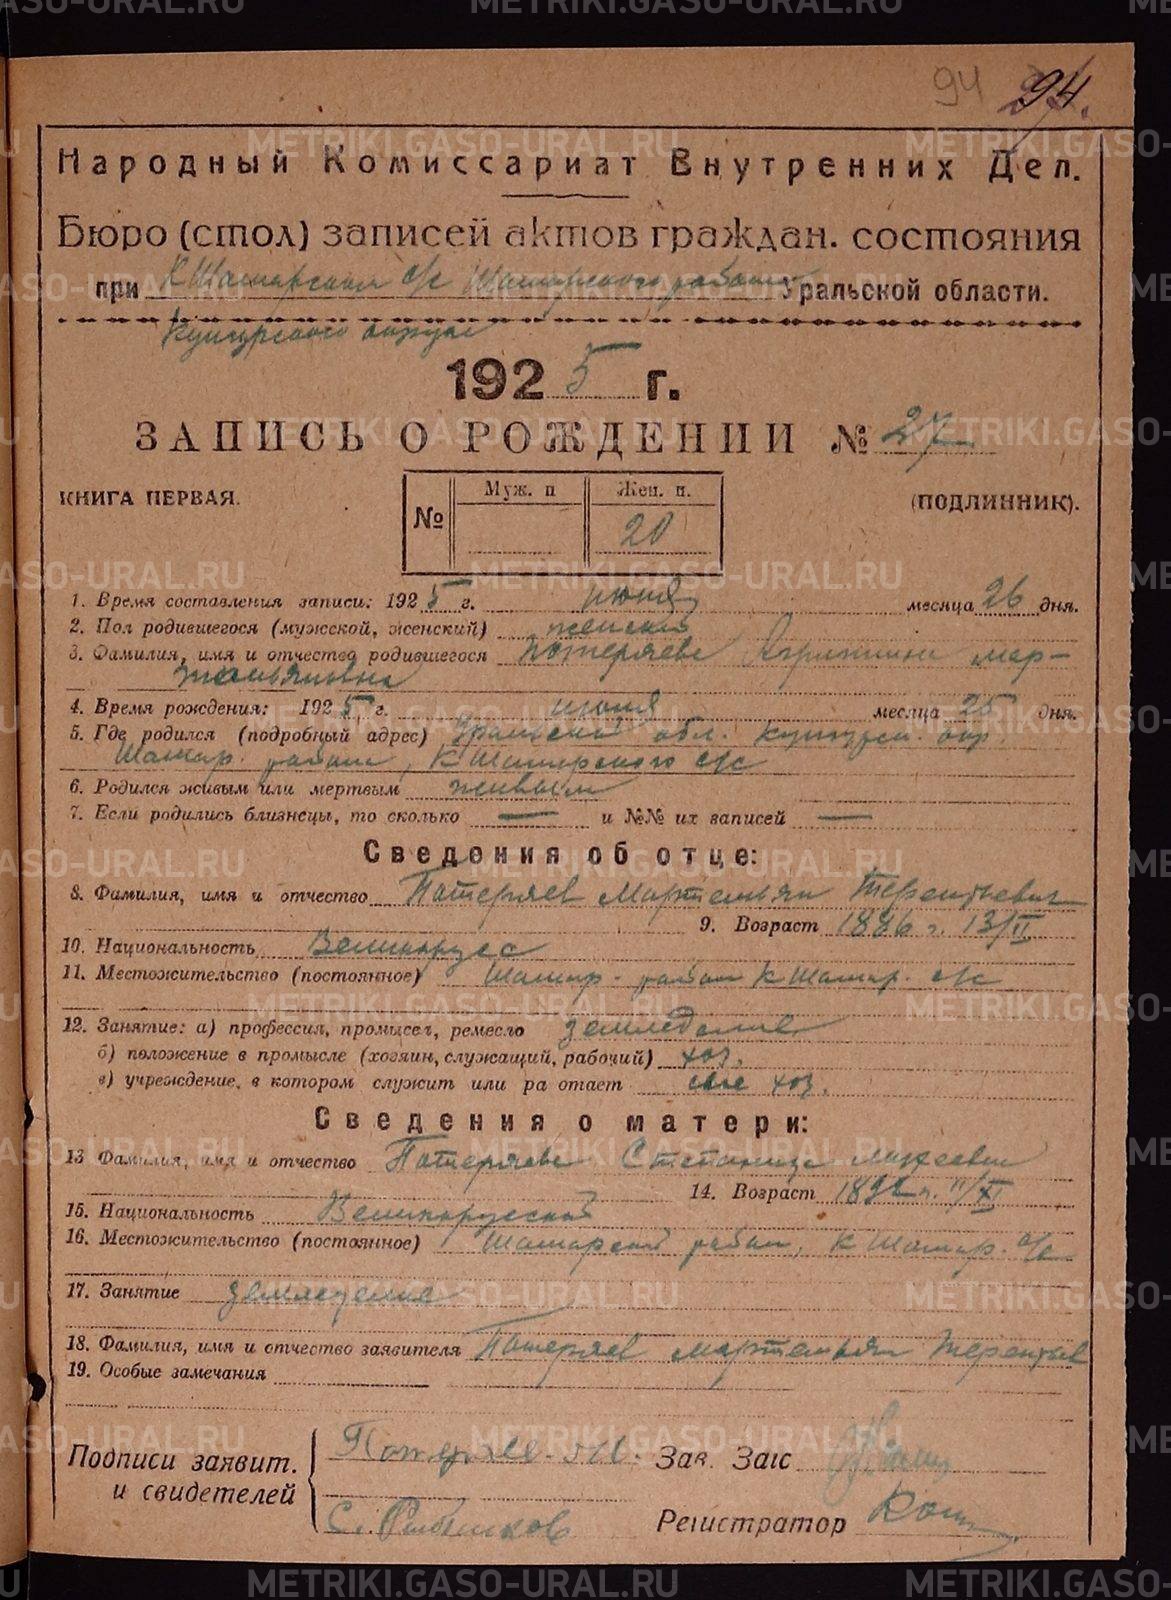 94 94.
Народный Комиссариат Внутренних Дел.
Бюро (стол) записей актов граждан. состояния
при К Шамарском с/с Шамарского района Уральской области.
Кунгурского округа
1925 г.
ЗАПИСЬ О РОЖДЕНИИ № 27
КНИГА ПЕРВАЯ. (ПОДЛИННИК).
№ Муж. п Жен. п.
20
1. Время составления записи: 1925 г. июня месяца 26 дня.
2. Пол родившегося (мужской, женский) женский
3. Фамилия, имя и отчество родившегося Потеряева Мар-
темьяновна
4. Время рождения: 1925 г. июня месяца 25 дня.
5. Где родился (подробный адрес) Уральской обл. Кунгурск. окр.
Шамар. район, К Шамарского с/с
6. Родился живым или мертвым живым
7. Если родились близнецы, то сколько — и №№ их записей —
Сведения об отце:
8. Фамилия, имя и отчество Потеряев Мартемьян Терентьевич
9. Возраст 1886 г. 13/II
10. Национальность Великорусс
11. Местожительство (постоянное) Шамар. район К Шамар. с/с
12. Занятие: а) профессия, промысел, ремесло земледелие
б) положение в промысле (хозяин, служащий, рабочий) хоз.
в) учреждение, в котором служит или ра отает свое хоз.
Сведения о матери:
13 Фамилия, имя и отчество Потеряева Степанида
14. Возраст 1892 г. 11/XI
15. Национальность Великорусской
16. Местожительство (постоянное) Шамарский район, К Шамар. с/с
17. Занятие земледелие
18. Фамилия, имя и отчество заявителя Потеряев Мартемьян Терентьев
19. Особые замечания
Подписи заявит. Потеряев Зав. Загс
и свидетелей С. Регистратор
METRIKI.GASO-URAL.RU